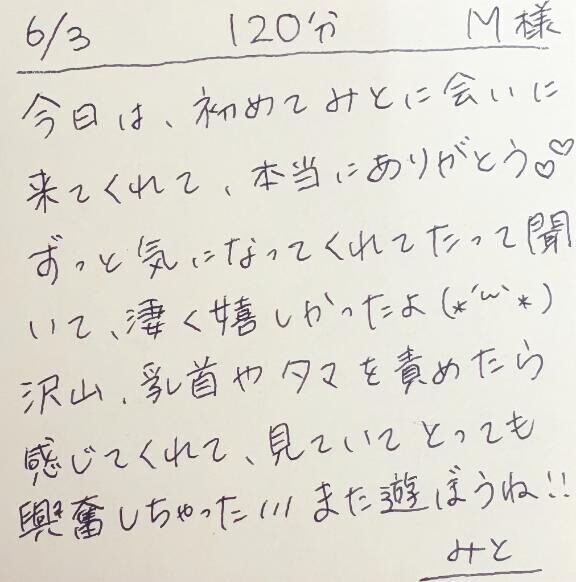 6/3 120分 M様
今日は、初めてみとに会いに
来てくれて、本当にありがとう♡♡
ずっと気になってくれてたって聞
いて、凄く嬉しかったよ(*´ω`*)
沢山、乳首やタマを責めたら
感じてくれて、見ていてとっても
興奮しちゃった///また遊ぼうね!!
みと